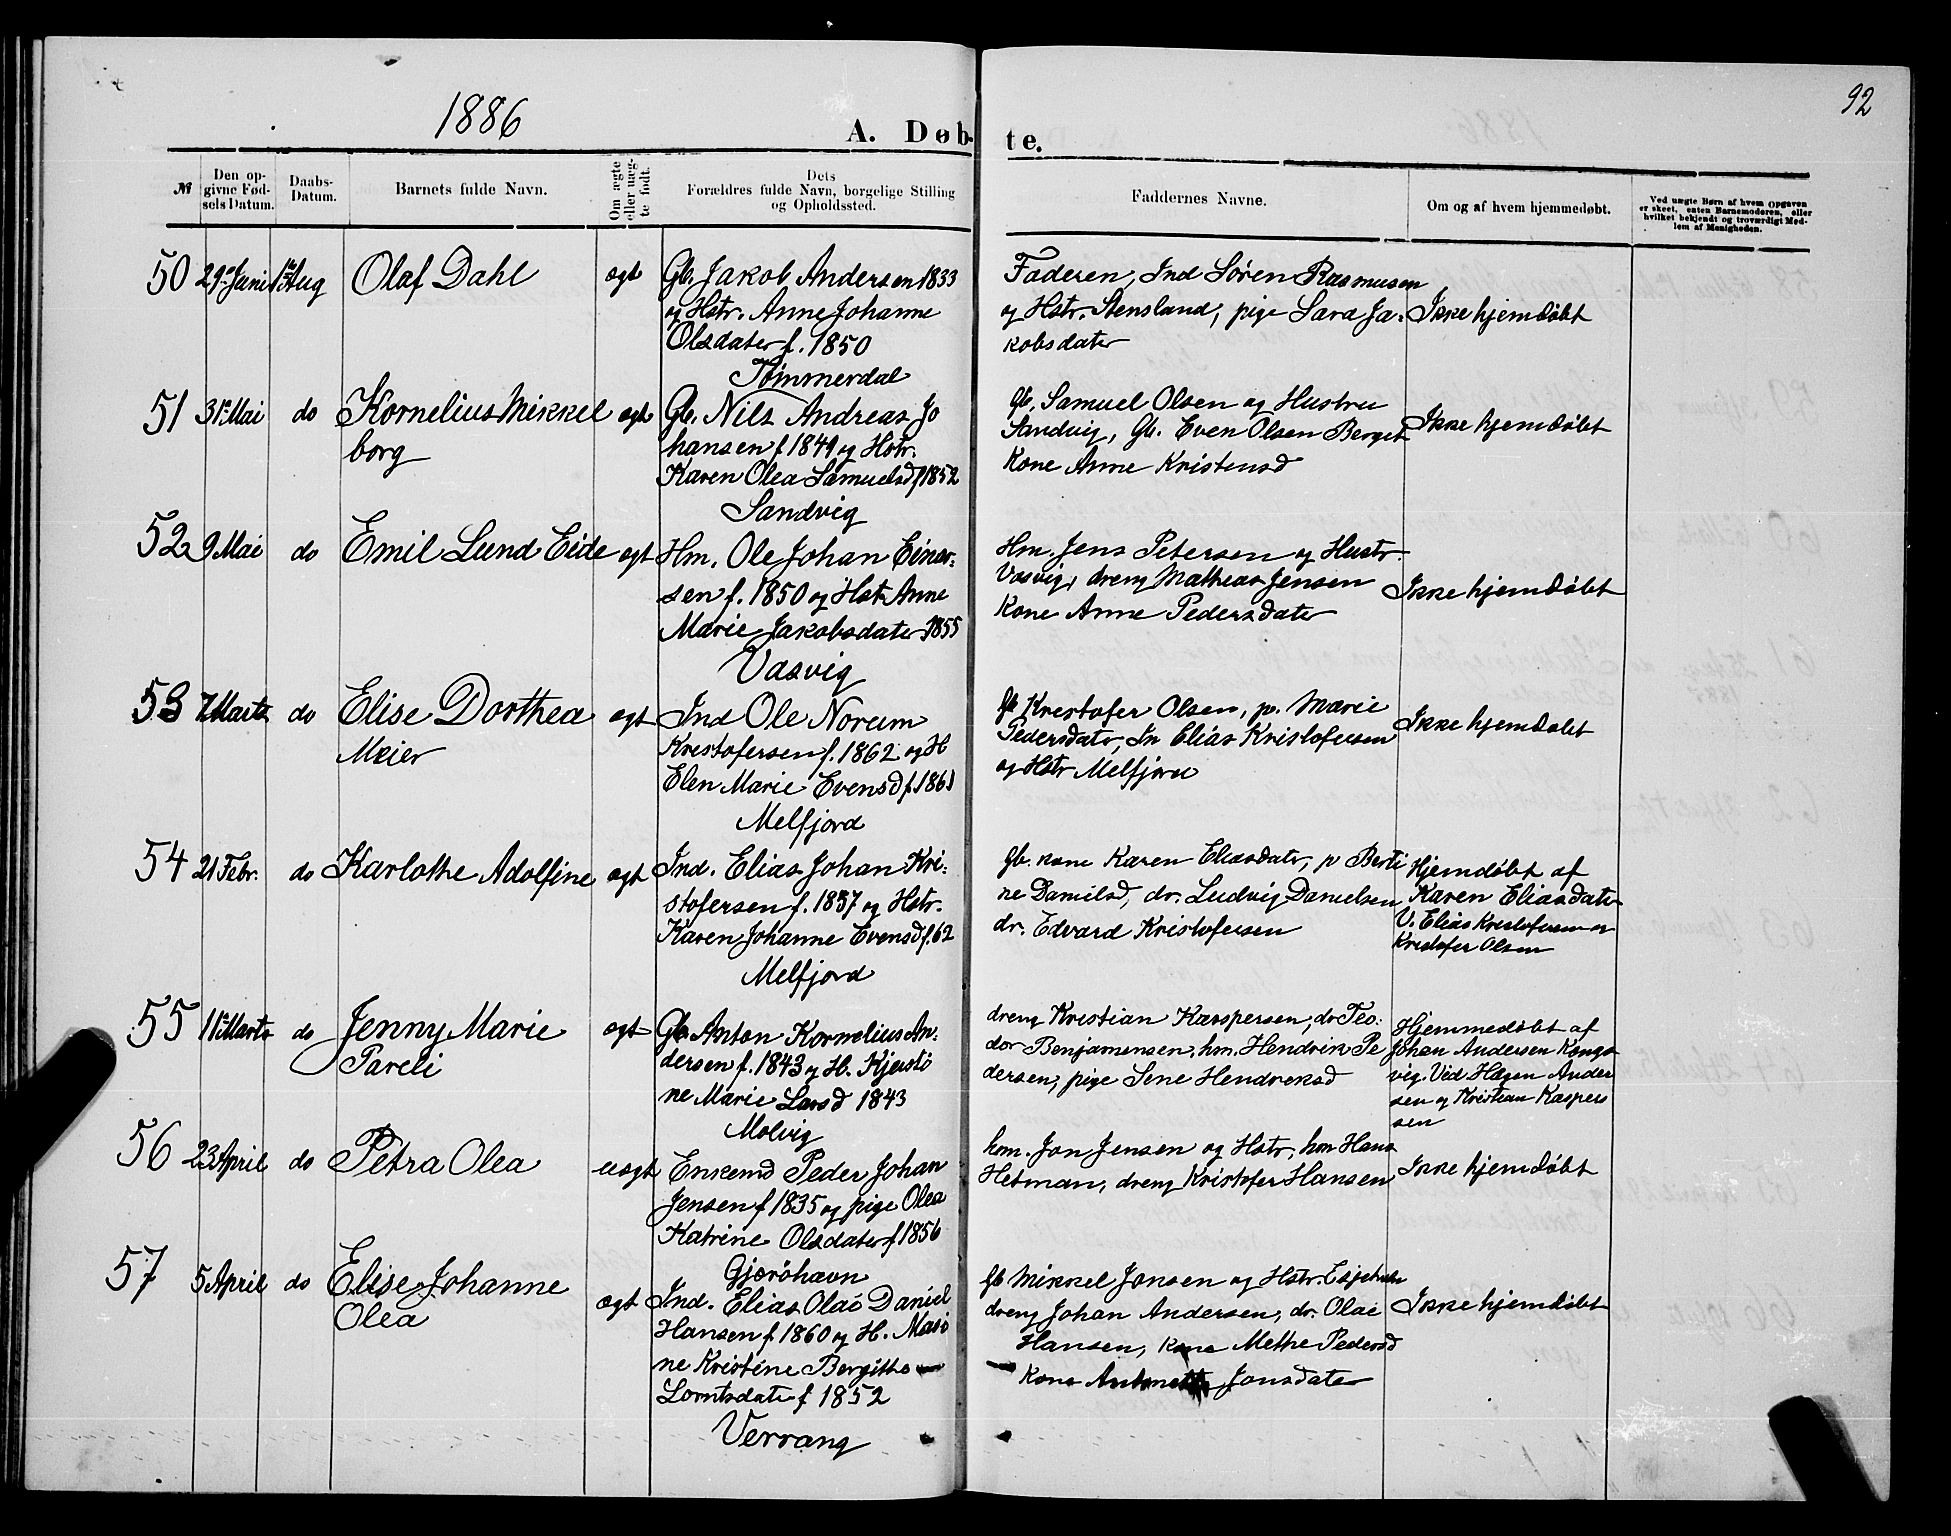 1886
92
A. Døb-
te.
№
Den op-
givne Fød-
sels Datum.
Daabs-
Datum.
Barnets fulde Navn.
Om ægte
eller uæg-
te født.
Dets
Forældres fulde Navn, borgelige Stilling
og Opholdssted.
Faddernes Navne.
Om og af hvem hjemmedøbt.
Ved uægte Børn af hvem Opgaven
er skeet, enten Barnemoderen, eller
hvilket bekjendt og troværdigt Med-
lem af Menigheden.
50 29de Juni 1ste Aug Olaf Dahl ægt Gb. Jakob Andersen 1833
og Hstr. Anne Johanne
Olsdater f. 1850
Tømmerdal
Faderen, Ind Søren Rasmusen
og Hstr. Stensland, pige Sara Ja-
kobsdater
Ikke hjemdøbt
51 31te Mai do Kornelius Mikkel
borg
ægt Gb. Nils Andreas Jo
hansen f 1849 og Hstr.
Karen Olea Samuelsd f 1852
Sandvig
Gb. Samuel Olsen og Hustru
Sandvig, Gb. Even Olsen Berget
Kone Anne Kristensd
Ikke hjemdøbt
52 9 Mai do Emil Lund Eide ægt Hm. Ole Johan Einar-
sen f. 1850 og Hst Anne
Marie Jakobsdater 1855
Vasvig
Hm. Jens Petersen og Hustr
Vasvig, dreng Matheas Jensen
Kone Anne Pedersdater
Ikke hjemdøbt
53 7 Marts do Elise Dorthea
Meier
ægt Ind Ole Norum
Krestofersen f. 1862 og H
Elen Marie Evensd f. 1861
Melfjord
Gb Krestofer Olsen, p. Marie
Pedersdater, In Elias Kristofersen
og Hstr Melfjord
Ikke hjemdøbt
54 21 Febr. do Karlothe Adolfine ægt Ind. Elias Johan Kri-
stofersen f. 1857 og Hstr.
Karen Johanne Evensd f. 62
Melfjord
Gb. kone Karen Eliasdater, p Berti
ne Danielsd, dr. Ludvig Danielsen
dr. Edvard Kristofersen
Hjemdøbt af
Karen Eliasdater
V. Elias Kristofersen og
Kristofer Olsen
55 11te Marts do Jenny Marie
Pareli
ægt Gb Anton Kornelius An-
dersen f. 1843 og H. Kjersti
ne Marie Larsd 1843
Molvig
dreng Kristian Kaspersen, dr Teo-
dor Benjamensen, hm. Hendrik Pe
dersen, pige Sene Hendreksd
Hjemmedøbt af
Johan Andersen Kongs
vig. Ved Hagen Ander
sen og Kristian Kaspers
sen
56 23 April do Petra Olea uægt Enkemd Peder Johan
Jensen f 1835 og pige Olea
Katrine Olsdater f 1856
Gjerøhavn
hm. Jon Jensen og Hstr, hm Hans
Hetman, dreng Kristofer Hansen
Ikke hjemdøbt
57 5 April do Elise Johanne
Olea
ægt Ind. Elias Olai Daniel
Hansen f 1860 og H. Masi
ne Kristine Bergitte
Lorntsdater f 1852
Verrang
Gb Mikkel Jonsen og Hstr.
dreng Johan Andersen, dr. Olai
Hansen, kone Methe Pedersd
Kone Antonette Jonsdater
Ikke hjemdøbt